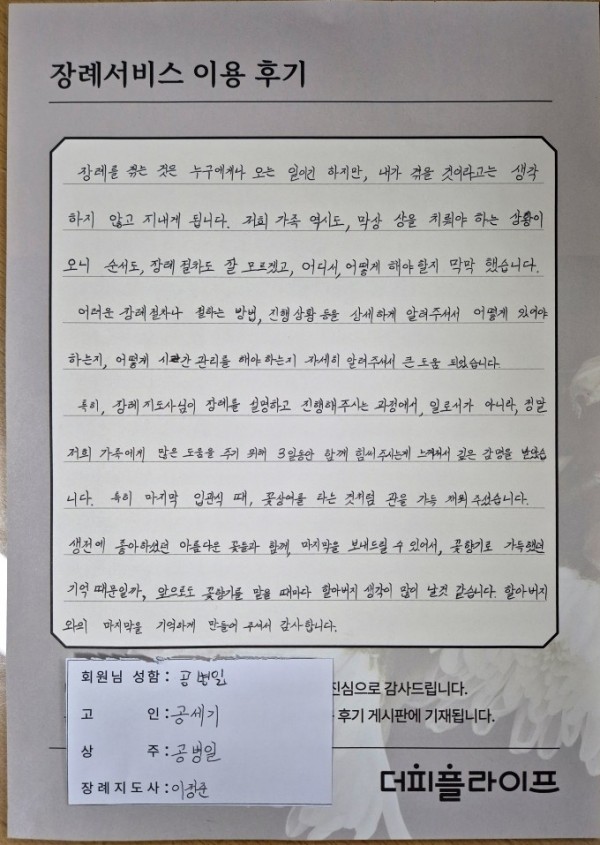 장례서비스 이용 후기
장례를 겪는 것은 누구에게나 오는 일이긴 하지만, 내가 겪을 것이라고는 생각
하지 않고 지내게 됩니다. 저희 가족 역시도, 막상 상을 치뤄야 하는 상황이
오니 순서도, 장례 절차도 잘 모르겠고, 어디서, 어떻게 해야 할지 막막 했습니다.
어려운 장례절차나 절하는 방법, 진행상황 등을 상세하게 알려주셔서 어떻게 있어야
하는지, 어떻게 시간 관리를 해야하는지 자세히 알려주셔서 큰 도움 되었습니다.
특히, 장례지도사님이 장례를 설명하고 진행해주시는 과정에서, 일로서가 아니라, 정말
저희 가족에게 많은 도움을 주기 위해 3일동안 함께 힘써주시는게 느껴져서 깊은 감명을 받았습
니다. 특히 마지막 입관식 때, 꽃상여를 타는 것처럼 관을 가득 채워주셨습니다.
생전에 좋아하셨던 아름다운 꽃들과 함께, 마지막을 보내드릴 수 있어서, 꽃향기로 가득했던
기억 때문일까, 앞으로도 꽃향기를 맡을 때마다 할아버지 생각이 많이 날것 같습니다. 할아버지
와의 마지막을 기억하게 만들어 주셔서 감사합니다.
진심으로 감사드립니다.
후기 게시판에 기재됩니다.
회원님 성함 : 공병일
고 인 : 공세기
상 주 : 공병일
장례지도사 : 이정준
더피플라이프